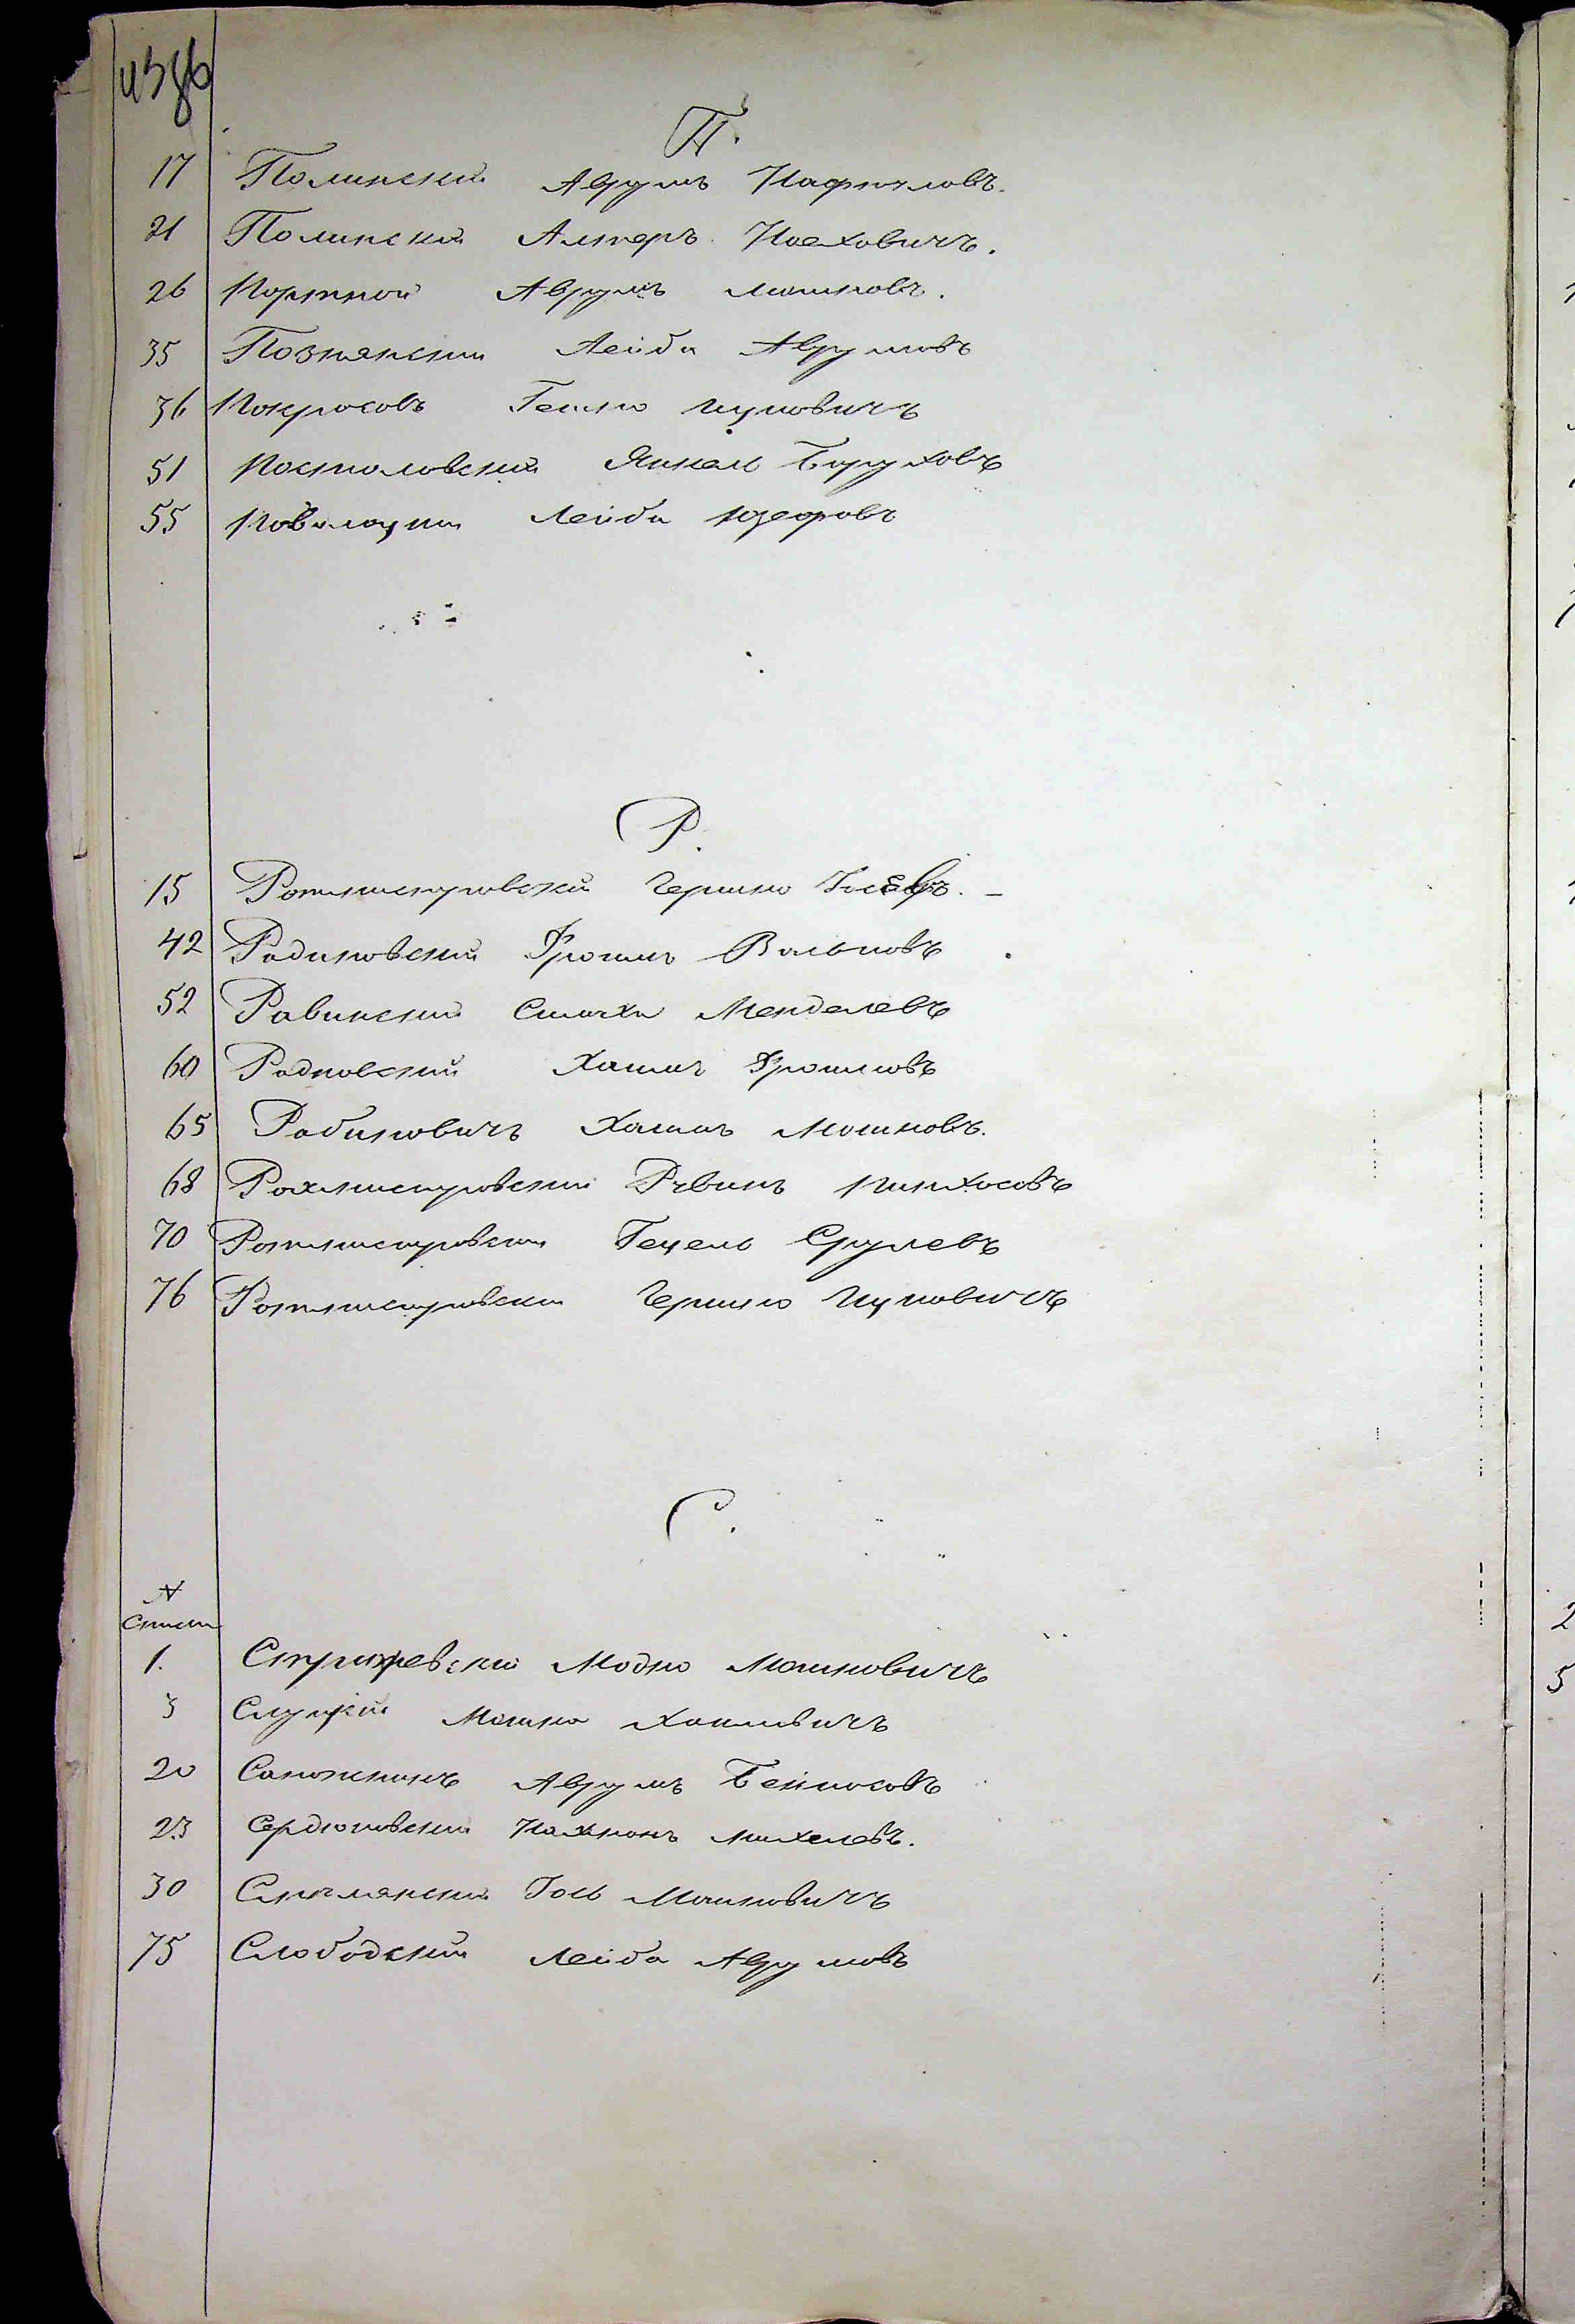 П.
17 Полинский Аврумъ Нафтуловъ.
21 Полинский Алтеръ Ноеховичъ.
26 Портной Аврумъ Мошковъ.
35 Познянский Лейба Аврумовъ
36 Покросовъ Гешко Ицковичъ
51 Постоловский Янкель Боруховъ
55 Лейба Юзефовъ
Р.
15 Ротмистровский Гершко
42 Радиковский Фроимъ Вольковъ
52 Равинский Симха Менделевъ
60 Радковский Хаимъ Фроимовъ
65 Рабиновичъ Хаимъ Мошковъ.
68 Рахмистровский Рувинъ Пинхосовъ
70 Ротмистровский Гецель Срулевъ
76 Ротмистровский Гершко Ицковичъ
С.
№
1. Стрижевский Модко Мошковичъ
3 Слуцкий Мошко Хаимовичъ
20 Сапожникъ Аврумъ Бейносовъ
23 Сердюковский Нахманъ Михелевъ.
30 Смелянский Іось Мошковичъ
75 Слободский Лейба Аврумовъ